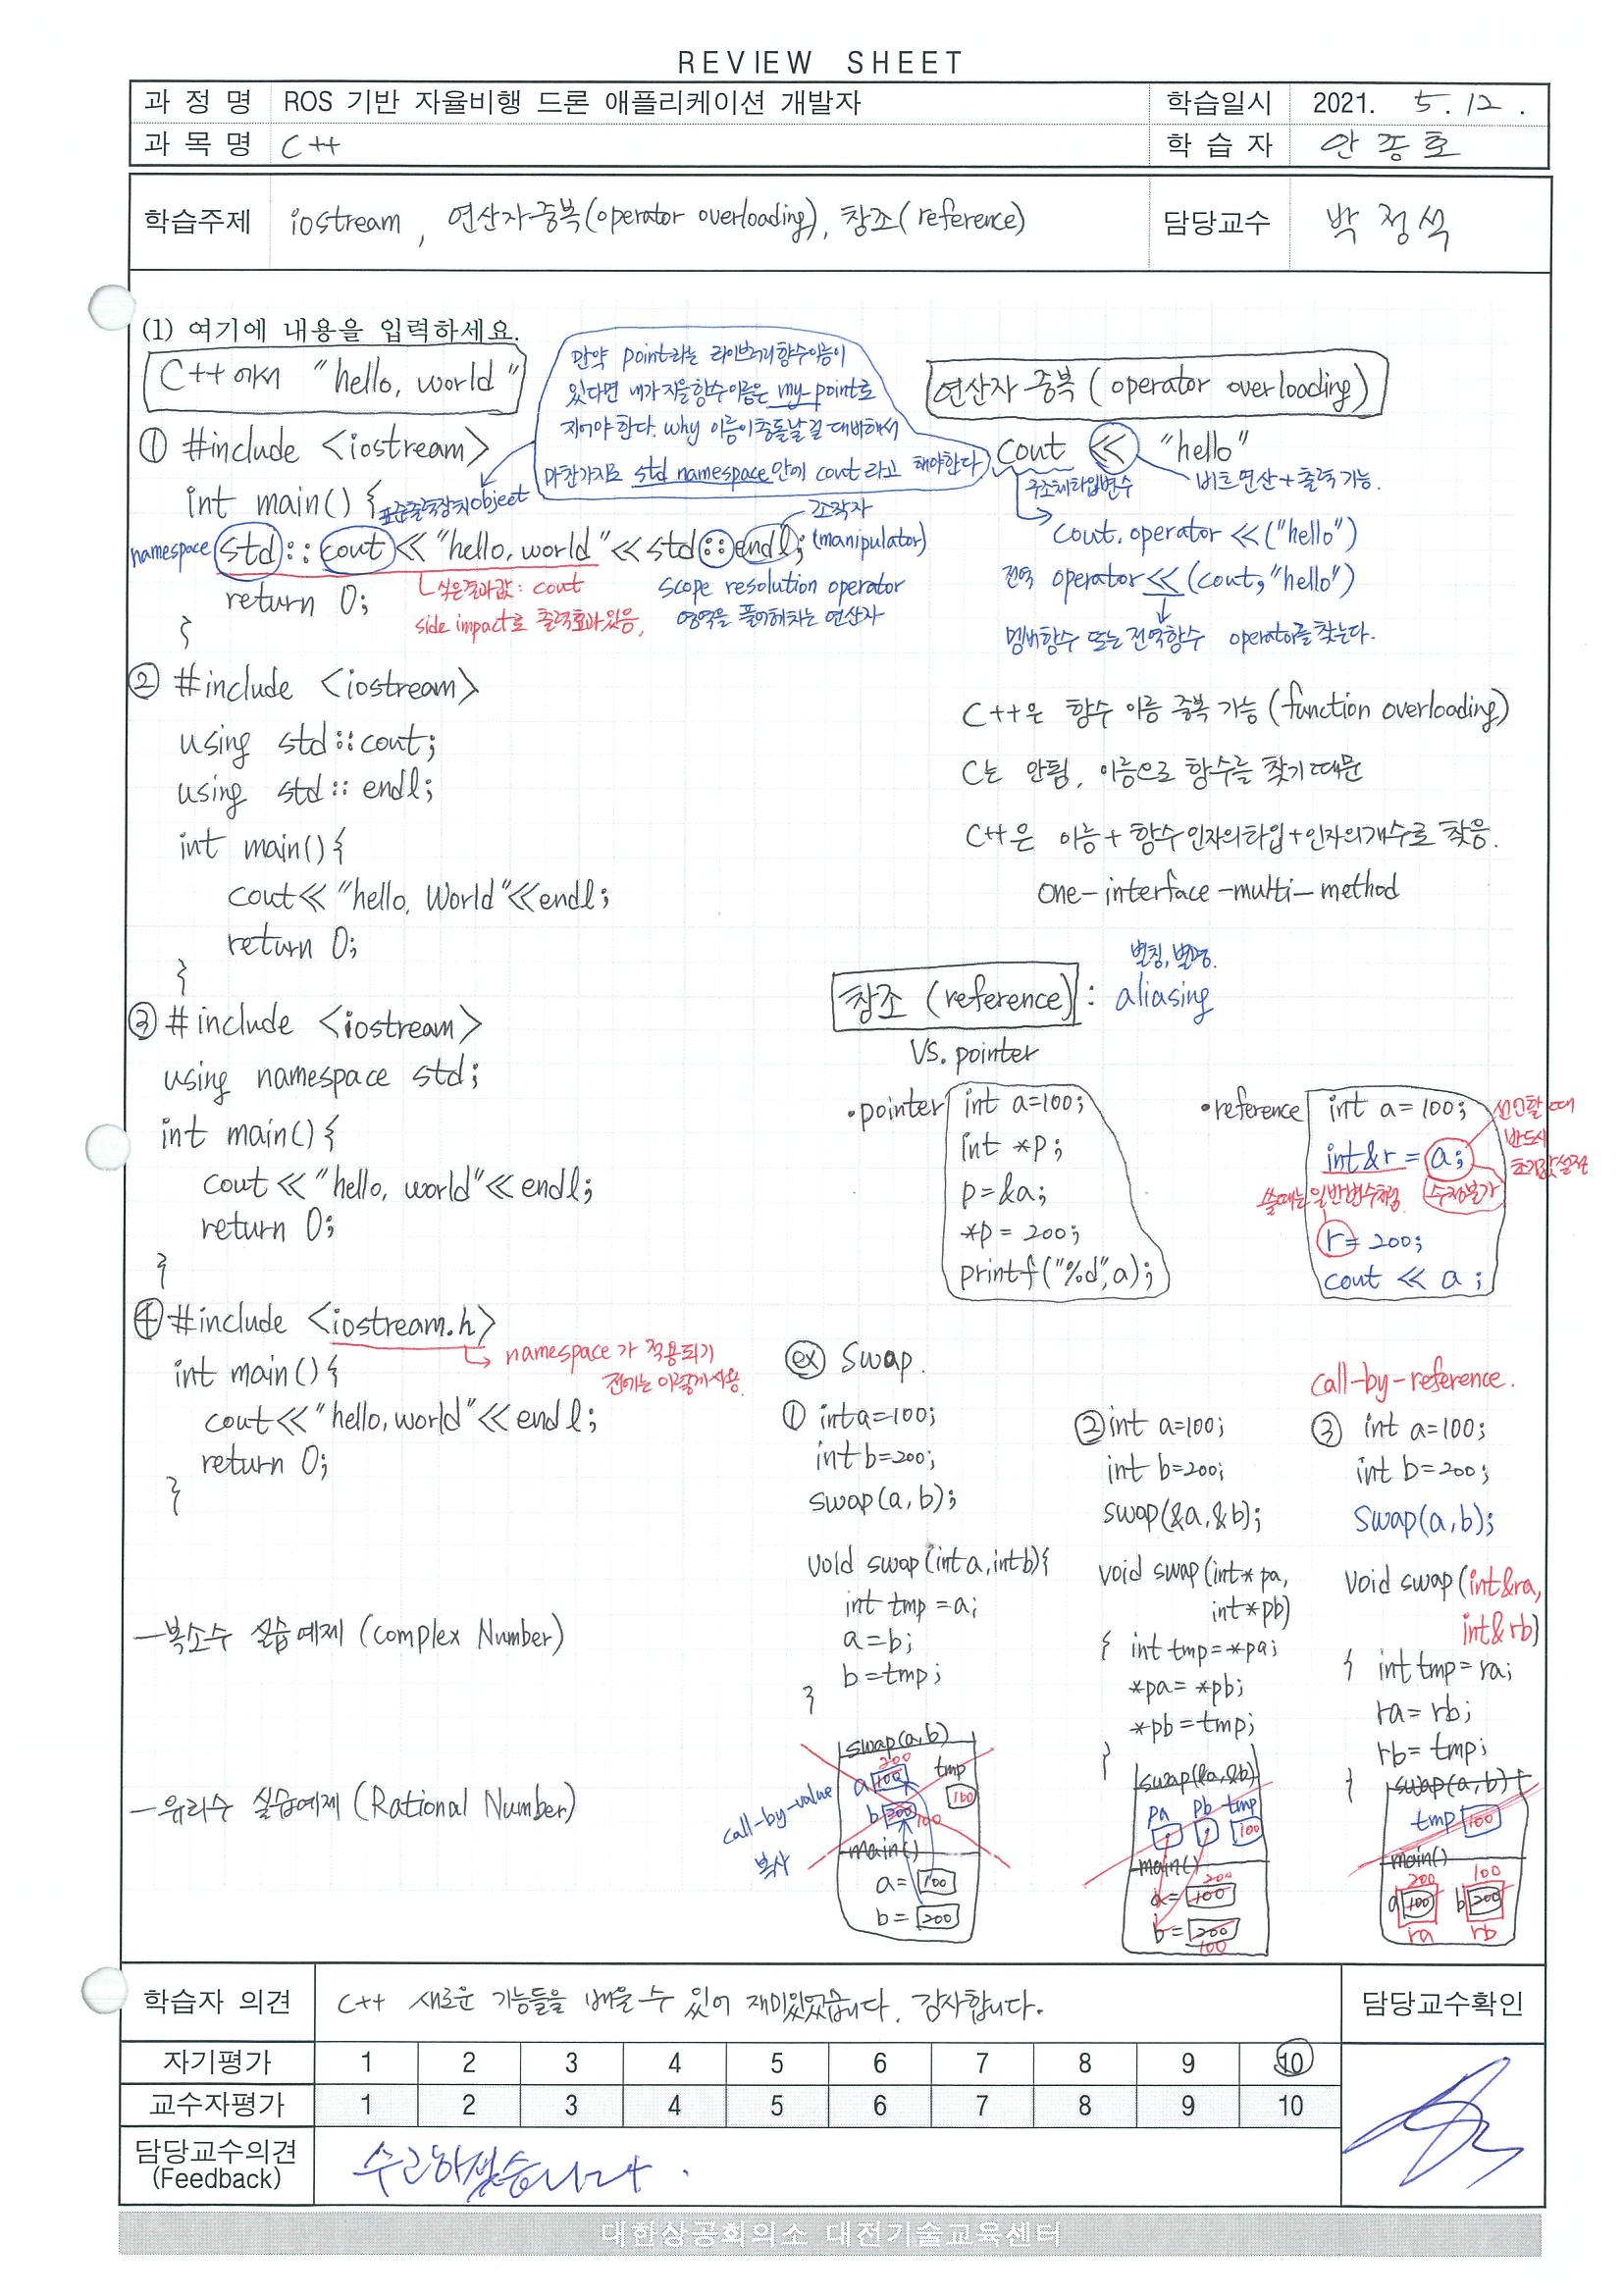 REVIEW SHEET
과 정 명 ROS 기반 자율비행 드론 애플리케이션 개발자 학습일시 2021. 5. 12 .
과 목 명 C++ 학 습 자 안 종 호
학습주제 iostream, 연산자 중복(operator overloading), 참조(reference) 담당교수 박 정 석
(1) 여기에 내용을 입력하세요.
C++에서 "hello, world"
만약 point라는 라이브러리 함수이름이
있다면 내가 지을 함수이름은 my_point로
지어야 한다. why 이름이 충돌날 걸 대비해서
마찬가지로 std namespace 안에 cout라고 해야한다
① #include <iostream>
int main() {
표준출력장치 object
namespace std::cout<<"hello, world"<<std::endl;
조작자
(manipulator)
return 0;
}
결과값: cout
side impact로 출력효과있음.
scope resolution operator
영역을 풀어헤치는 연산자
② #include <iostream>
using std::cout;
using std::endl;
int main(){
cout<<"hello, World"<<endl;
return 0;
}
③ #include <iostream>
using namespace std;
int main(){
cout<<"hello, world"<<endl;
return 0;
}
④ #include <iostream.h>
namespace가 적용되기
전에는 이렇게 사용.
int main(){
cout<<"hello, world"<<endl;
return 0;
}
-복소수 실습예제 (Complex Number)
-유리수 실습예제 (Rational Number)
연산자 중복 (operator overloading)
cout << "hello"
구조체타입변수
비트연산+출력 기능.
cout.operator <<("hello")
전역 operator<<(cout, "hello")
멤버함수 또는 전역함수 operator를 찾는다.
C++은 함수 이름 중복 가능 (function overloading)
C는 안됨, 이름으로 함수를 찾기 때문
C++은 이름+함수인자의타입+인자의개수로 찾음.
one-interface-multi-method
별칭, 별명.
참조 (reference) : aliasing
VS. pointer
•pointer
int a=100;
int *p;
p=&a;
*p = 200;
printf("%d",a);
•reference
int a=100;
int&r = a;
선언할 때
반드시
초기값설정
수정불가
쓸때는 일반변수처럼
r= 200;
cout << a ;
ex swap.
① int a=100;
int b=200;
swap(a,b);
void swap(int a,int b){
int tmp =a;
a=b;
b=tmp;
}
swap(a,b)
a 100 200 tmp 100
b 200 100
call-by-value
복사
main()
a= 100
b= 200
② int a=100;
int b=200;
swap(&a,&b);
void swap(int* pa,
int*pb)
{ int tmp=*pa;
*pa= *pb;
*pb=tmp;
}
swap(&a,&b)
pa pb tmp
100
main()
200
a= 100
b= 200
100
call-by-reference.
③ int a=100;
int b=200;
swap(a,b);
void swap(int&ra,
int&rb)
{ int tmp=ra;
ra= rb;
rb= tmp;
}
swap(a,b)
tmp 100
main()
200 100
a 100 b 200
ra rb
학습자 의견 C++ 새로운 기능들을 배울 수 있어 재미있었습니다. 감사합니다. 담당교수확인
자기평가 1 2 3 4 5 6 7 8 9 10
교수자평가 1 2 3 4 5 6 7 8 9 10
담당교수의견
(Feedback)
수고하셨습니다.
대한상공회의소 대전기술교육센터